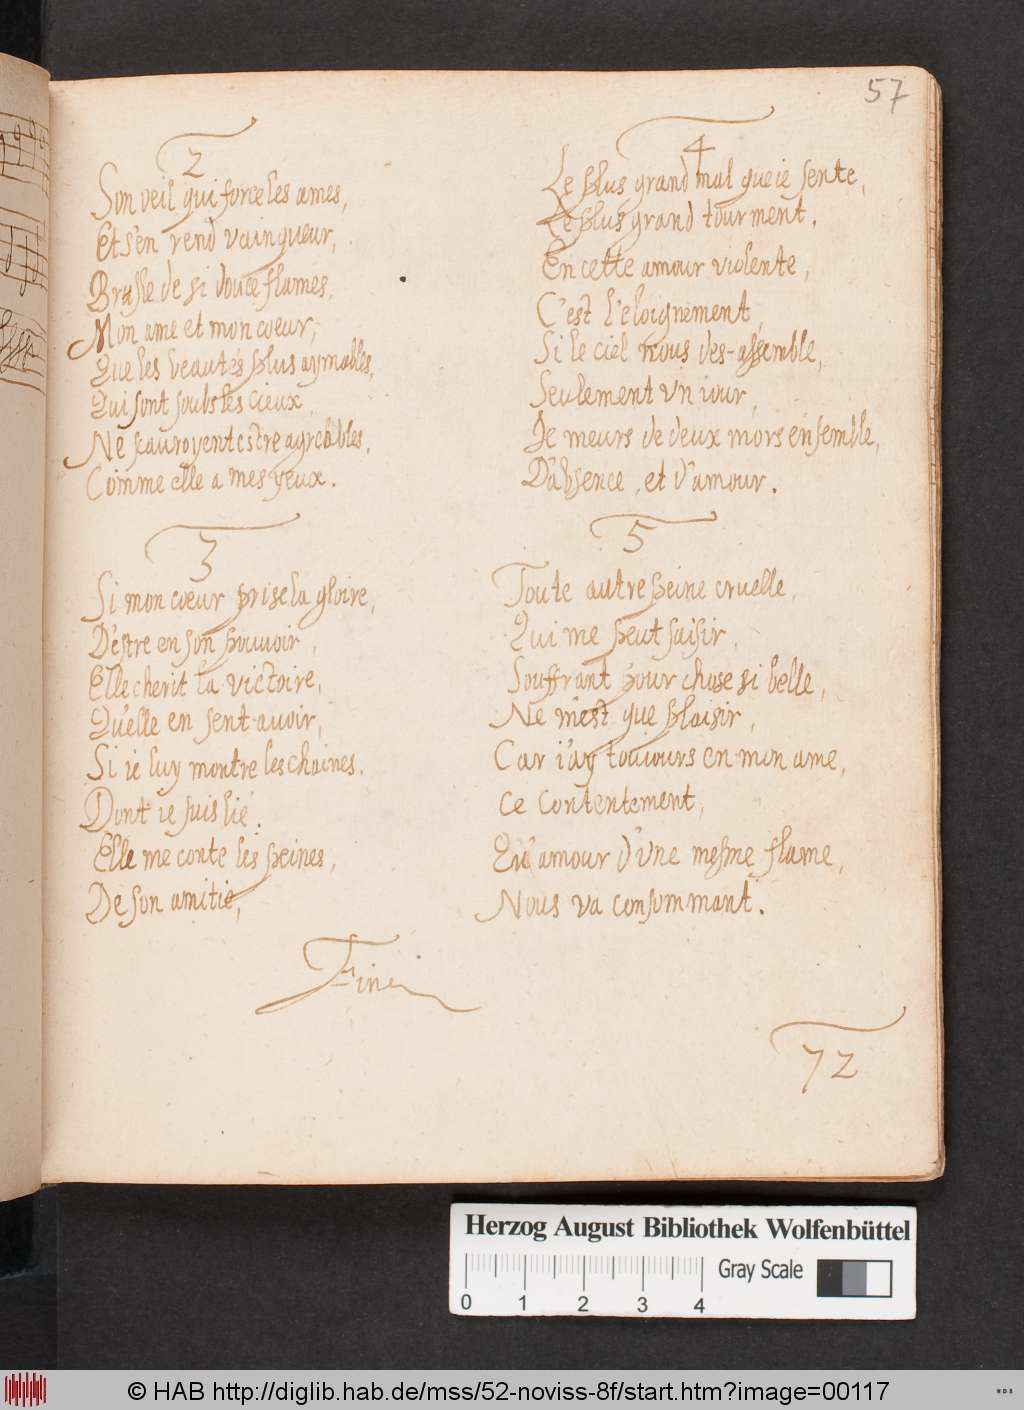 57
2
Son oeil qui force les ames,
Et s'en rend vainqueur,
Brusle de si douce flames,
Mon ame et mon coeur,
Que les beautés plus aymables,
Qui sont soubs les cieux
Ne scauroyent estre agreables,
Comme elle a mes yeux.
3
Si mon coeur prise la gloire,
D'estre en son pouuoir,
Elle cherit la victoire,
Qu'elle en sent auoir,
Si ie luy montre les chaines,
Dont ie suis lié.
Elle me conte les peines,
De son amitie,
4
Le plus grand mal que ie sente,
Le plus grand tourment,
En cette amour violente,
C'est l'eloignement,
Si le ciel nous des-assemble,
Seulement vn iour,
Je meurs de deux mors ensemble,
D'absence, et d'amour.
5
Toute autre peine cruelle,
Qui me peut saisir,
Souffrant pour chose si belle,
Ne m'est que plaisir,
Car i'ay touiours en mon ame,
Ce contentement,
Qu'amour d'vne mesme flame,
Nous va consommant.
Fine
72
Herzog August Bibliothek Wolfenbüttel
Gray Scale
0 1 2 3 4
© HAB http://diglib.hab.de/mss/52-noviss-8f/start.htm?image=00117